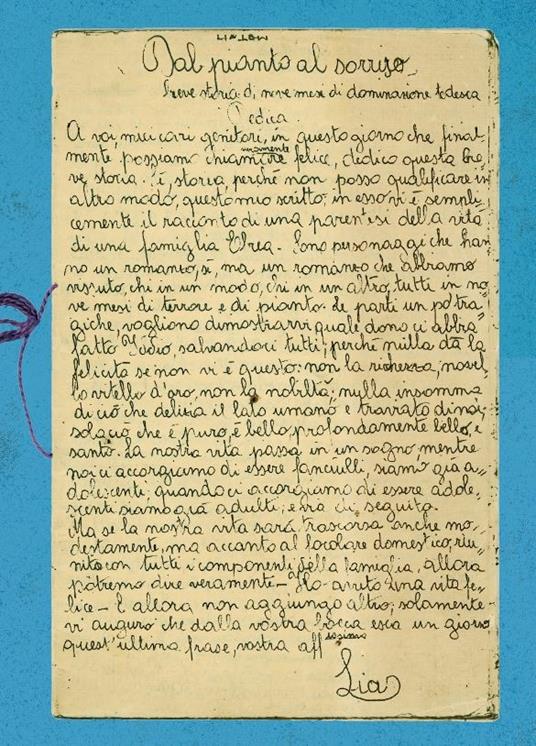 Dal pianto al sorriso
breve storia di nove mesi di dominazione tedesca
Dedica
A voi, miei cari genitori, in questo giorno che final-
mente possiamo chiamare veramente felice, dedico questa bre-
ve storia. Sì, storia, perché non posso qualificare in
altro modo, questo mio scritto; in esso vi è sempli-
cemente il racconto di una parentesi della vita
di una famiglia Ebrea. Sono personaggi che han-
no un romanzo, sì, ma un romanzo che abbiamo
vissuto, chi in un modo, chi in un altro, tutti in no-
ve mesi di terrore e di pianto. Le parti un po' tra-
giche, vogliono dimostrarvi quale dono ci abbia
fatto Iddio, salvandoci tutti; perché nulla dà la
felicità se non vi è questo: non la ricchezza, novel-
lo vitello d'oro, non la nobiltà; nulla insomma
di ciò che delizia il lato umano e
solo ciò che è puro, è bello, profondamente bello, e
santo. La nostra vita passa in un sogno, mentre
noi ci accorgiamo di essere fanciulli, siamo già a-
dolescenti; quando ci accorgiamo di essere adole-
scenti siamo già adulti; e via di seguito.
Ma se la nostra vita sarà trascorsa anche mo-
destamente, ma accanto al focolare domestico, riu-
nito con tutti i componenti della famiglia, allora
potremo dire veramente - Ho avuto una vita fe-
lice - E allora non aggiungo altro; solamente
vi auguro che dalla vostra bocca esca un giorno
quest'ultima frase, vostra affissima
Lia